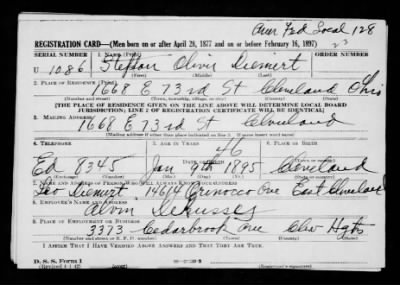 Local 128
REGISTRATION CARD—(Men born on or after April 28, 1877 and on or before February 16, 1897)
SERIAL NUMBER 1. NAME (Print) ORDER NUMBER
U 1086 Oliver Siemert
(First) (Middle) (Last)
2. PLACE OF RESIDENCE (Print)
1668 E 73rd St Cleveland Ohio
(Number and street) (Town, township, village, or city) (County) (State)
[THE PLACE OF RESIDENCE GIVEN ON THE LINE ABOVE WILL DETERMINE LOCAL BOARD
JURISDICTION; LINE 2 OF REGISTRATION CERTIFICATE WILL BE IDENTICAL]
3. MAILING ADDRESS
1668 E 73rd St Cleveland
[Mailing address if other than place indicated on line 2. If same insert word same]
4. TELEPHONE 5. AGE IN YEARS 6. PLACE OF BIRTH
46
DATE OF BIRTH
Ed 8345 Jan 9th 1895 Cleveland
7. NAME AND ADDRESS OF PERSON WHO WILL ALWAYS KNOW YOUR ADDRESS
Leo Siemert Orinoco Ave East Cleveland
8. EMPLOYER'S NAME AND ADDRESS
Alvin
9. PLACE OF EMPLOYMENT OR BUSINESS
3373 Cedarbrook Ave Clev Hgts
(Number and street or R. F. D. number) (Town) (County) (State)
I AFFIRM THAT I HAVE VERIFIED ABOVE ANSWERS AND THAT THEY ARE TRUE.
D. S. S. Form 1